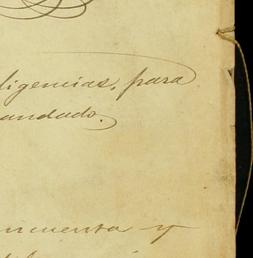 ligencias, para
andado.
nmenta y